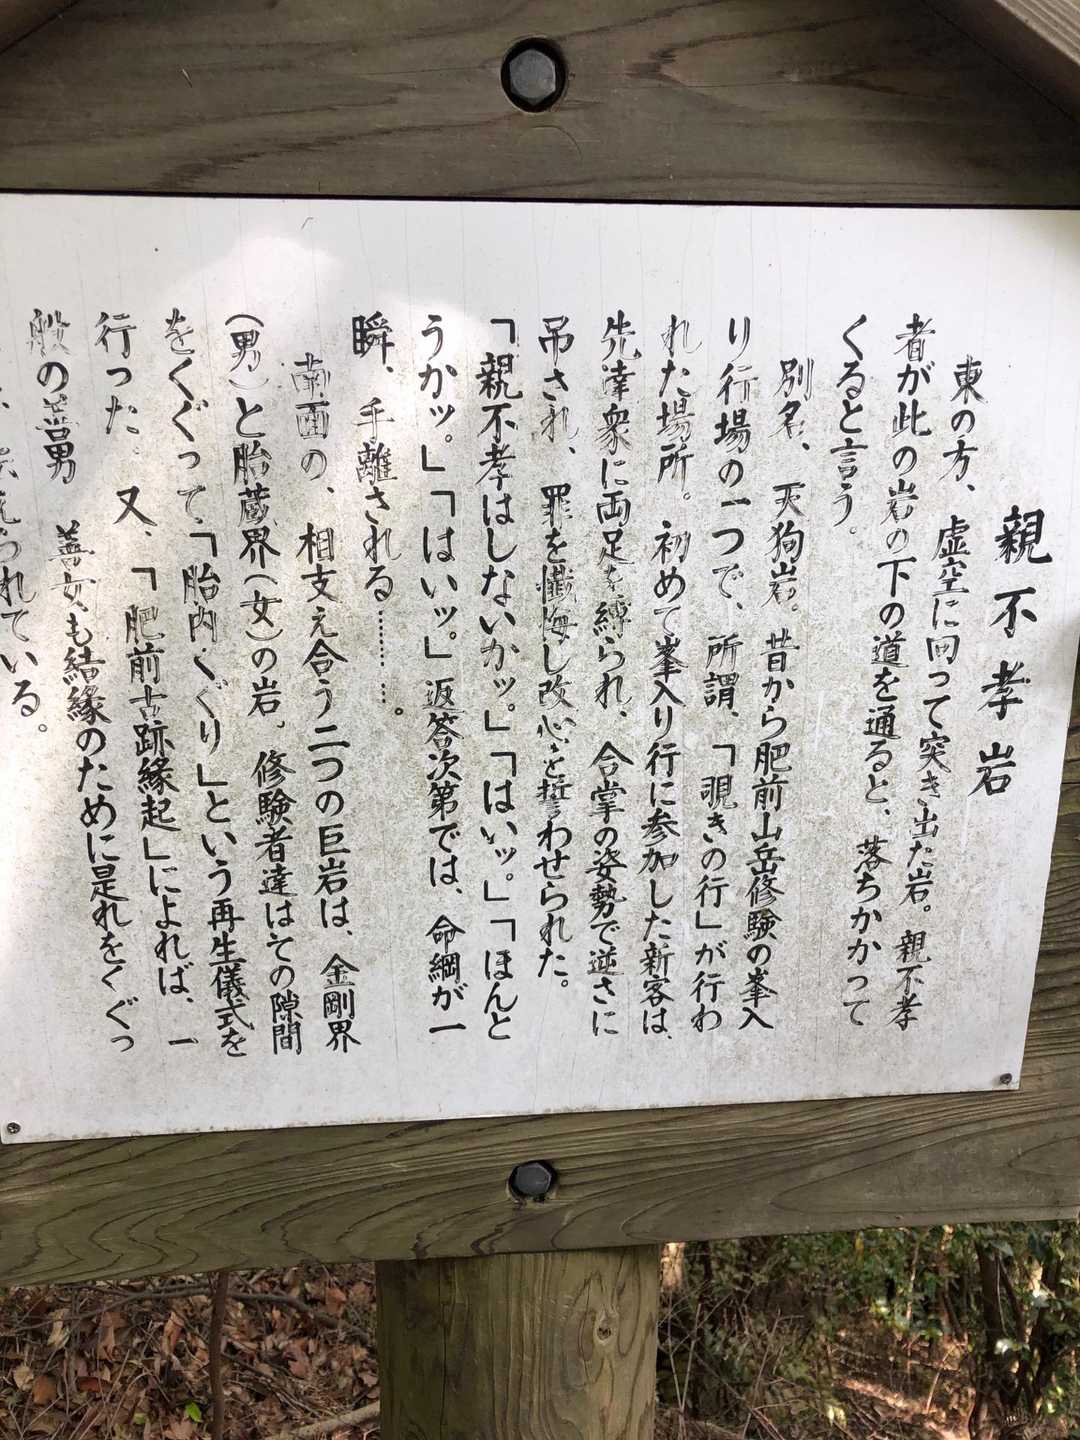 親不孝岩
東の方、虚空に向って突き出た岩。親不孝
者が此の岩の下の道を通ると、落ちかかって
くると言う。
別名、天狗岩。昔から肥前山岳修験の峯入
り行場の一つで、所謂、「覗きの行」が行わ
れた場所。初めて峯入り行に参加した新客は、
先達衆に両足を縛られ、合掌の姿勢で逆さに
吊され、罪を懺悔し改心を誓わせられた。
「親不孝はしないかッ。」「はいッ。」「ほんと
うかッ。」「はいッ。」返答次第では、命綱が一
瞬、手離される………。
南面の、相支え合う二つの巨岩は、金剛界
(男)と胎蔵界(女)の岩。修験者達はその隙間
をくぐって、「胎内くぐり」という再生儀式を
行った。又、「肥前古跡縁起」によれば、一
般の善男 善女も結縁のために是れをくぐっ
られている。